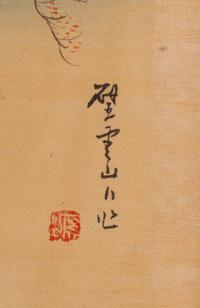 碧雲山人作